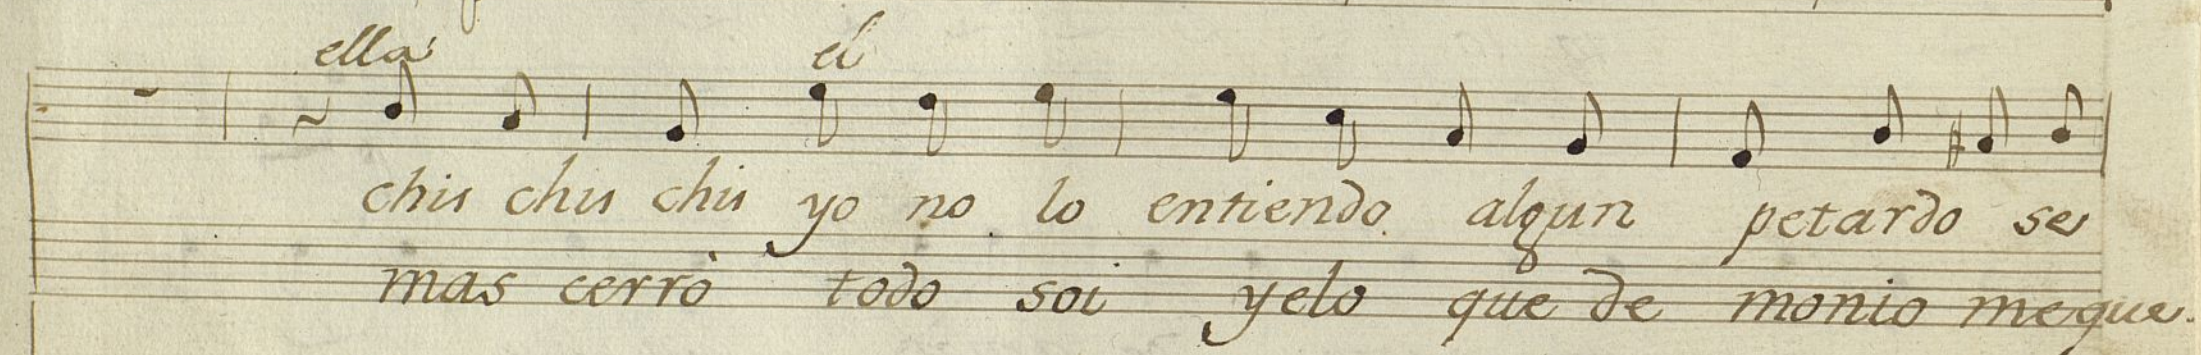 ella el
chis chis chis yo no lo entiendo algun petardo se
mas cerrò todo soi yelo que de monio me que